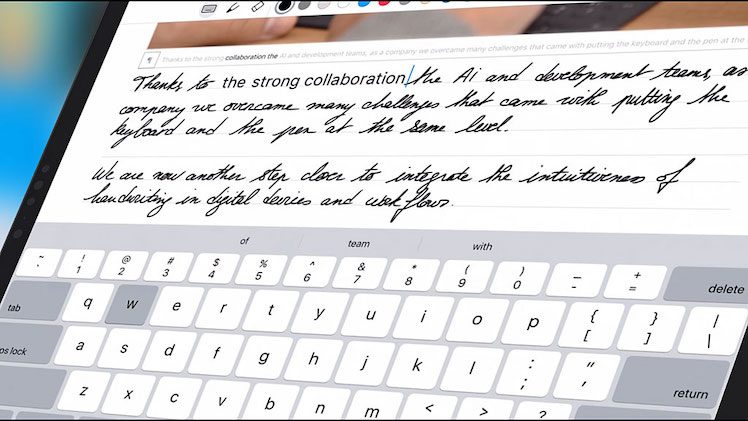 ¶ Thanks to the strong collaboration the AI and development teams, as a company we overcame many challenges that came with putting the keyboard and the pen at the
Thanks to the strong collaboration the Ai and development teams, as
company we overcame many challenges that came with putting the
keyboard and the pen at the same level.
We are now another step closer to integrate the intuitiveness of
handwriting in digital devices and workflows.
of team with
~ ! @ # $ % ^ & * ( ) _ + delete
` 1 2 3 4 5 6 7 8 9 0 - =
tab q w e r t y u i o p { [ } ] | \
ps lock a s d f g h j k l : ; " ' return
z x c v b n m < > ?